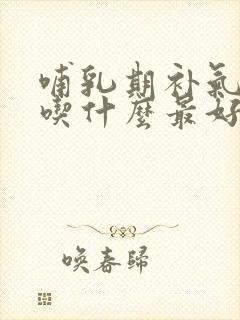 哺乳期补氣
喫什麼最好
唤春歸